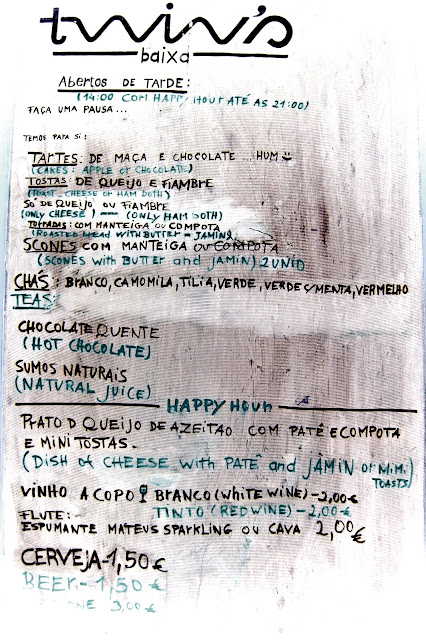 twin's
baixa
Abertos DE TARDE:
(14:00 COM HAPPY HOUR ATÉ AS 21:00)
FAÇA UMA PAUSA...
TEMOS PARA SI:
TARTES: DE MAÇA E CHOCOLATE ... HUM
(CAKES: APPLE OF CHOCOLATE)
TOSTAS: DE QUEIJO E FIAMBRE
(TOAST - CHEESE OF HAM BOTH)
SÓ DE QUEIJO OU FIAMBRE
(ONLY CHEESE) — (ONLY HAM BOTH)
TORRADAS: COM MANTEIGA OU COMPOTA
(ROASTED BREAD WITH BUTTER - JAMIN)
SCONES COM MANTEIGA OU COMPOTA
(SCONES with BUTTER and JAMIN) 2 UNID
CHÁS: BRANCO, CAMOMILA, TILIA, VERDE, VERDE C/MENTA, VERMELHO
TEAS:
CHOCOLATE QUENTE
(HOT CHOCOLATE)
SUMOS NATURAIS
(NATURAL JUICE)
HAPPY HOUR
PRATO D QUEIJO DE AZEITÃO COM PATÉ E COMPOTA
E MINI TOSTAS.
(DISH of CHEESE with PATÊ and JAMIN of MiMi
TOASTS)
VINHO A COPO BRANCO (WHITE WINE) - 2,00€
FLUTE: TINTO (RED WINE) - 2,00€
ESPUMANTE MATEUS SPARKLING OU CAVA 2,00€
CERVEJA - 1,50€
BEER - 1,50€
3,00€